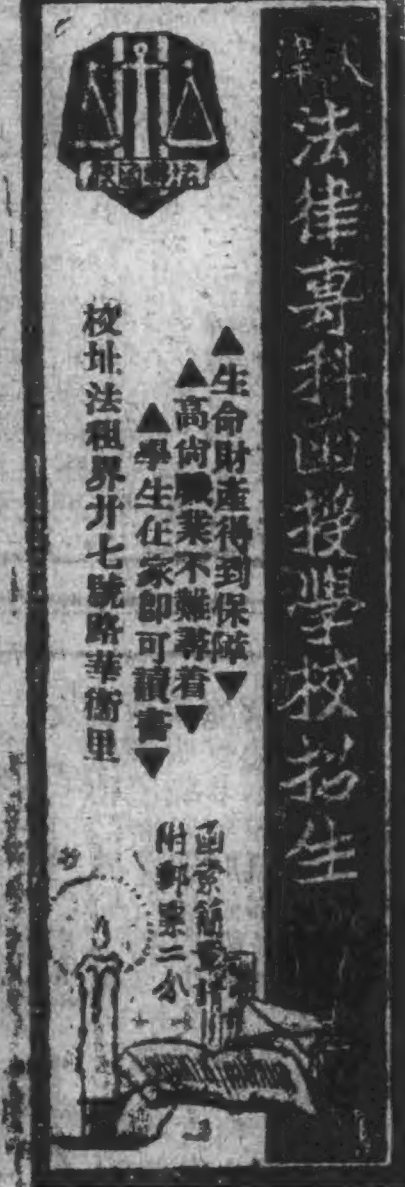 法律專科函授學校招生
▲生命財產得到保障▼
▲高尚職業不難尋着▼
▲學生在家即可讀書▼
校址法租界廿七號路華衛里
函索簡章請
附郵票二分